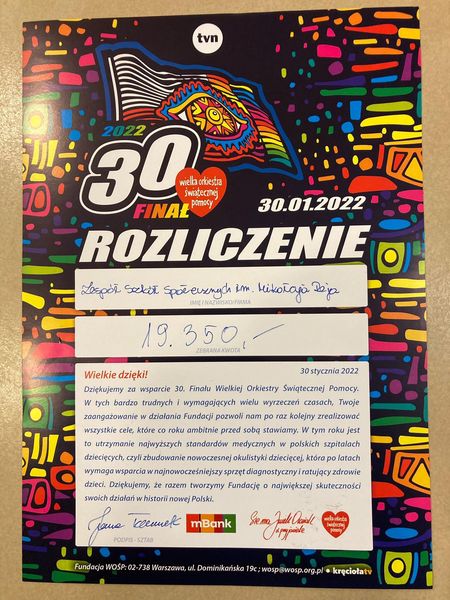 tvn
2022
30
FINAŁ
wielka orkiestra
świątecznej
pomocy
30.01.2022
ROZLICZENIE
Zespół Szkół Społecznych im. Mikołaja Reja
IMIĘ I NAZWISKO/FIRMA
19.350,-
ZEBRANA KWOTA
Wielkie dzięki!
30 stycznia 2022
Dziękujemy za wsparcie 30. Finału Wielkiej Orkiestry Świątecznej Pomocy.
W tych bardzo trudnych i wymagających wielu wyrzeczeń czasach, Twoje
zaangażowanie w działania Fundacji pozwoli nam po raz kolejny zrealizować
wszystkie cele, które co roku ambitnie przed sobą stawiamy. W tym roku jest
to utrzymanie najwyższych standardów medycznych w polskich szpitalach
dziecięcych, czyli zbudowanie nowoczesnej okulistyki dziecięcej, która po latach
wymaga wsparcia w najnowocześniejszy sprzęt diagnostyczny i ratujący zdrowie
dzieci. Dziękujemy, że razem tworzymy Fundację o największej skuteczności
swoich działań w historii nowej Polski.
mBank
wielka orkiestra
świątecznej
pomocy
PODPIS - SZTAB
Fundacja WOŚP: 02-738 Warszawa, ul. Dominikańska 19c ; wosp@wosp.org.pl • kręciołatv